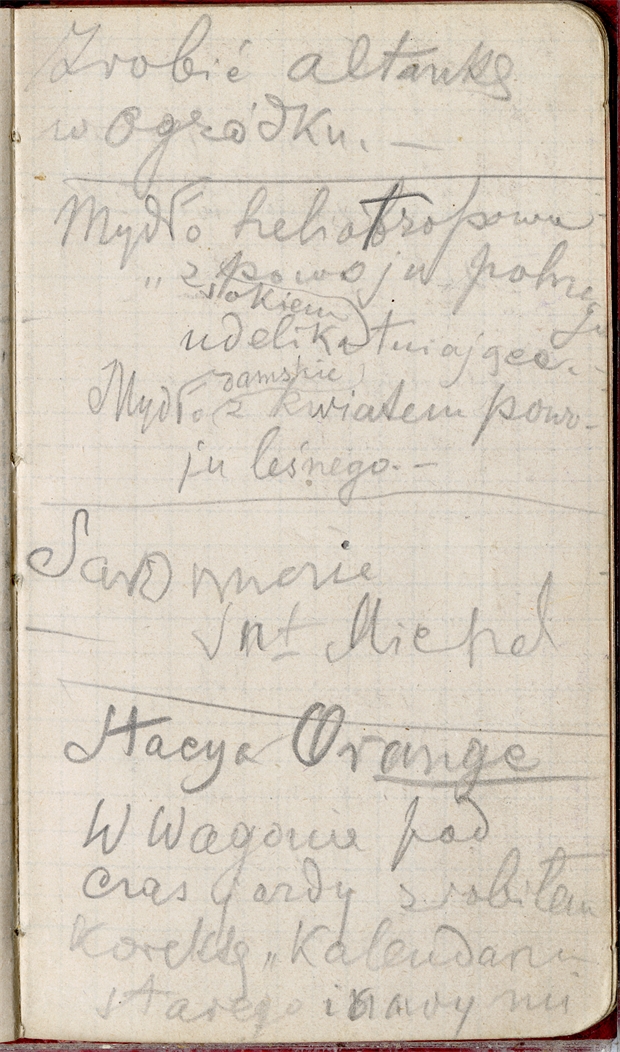 Zrobić altankę
w ogródku. —
Mydło heliotropowe
„ z powoju polnego
sokiem
udelikatniające.
damskie
Mydło z kwiatem powo-
ju leśnego. —
Savonnerie
Snt Michel
Stacya Orange
W Wagonie pod
czas jazdy zrobiłam
Korektę „Kalendarz
starego i nowy